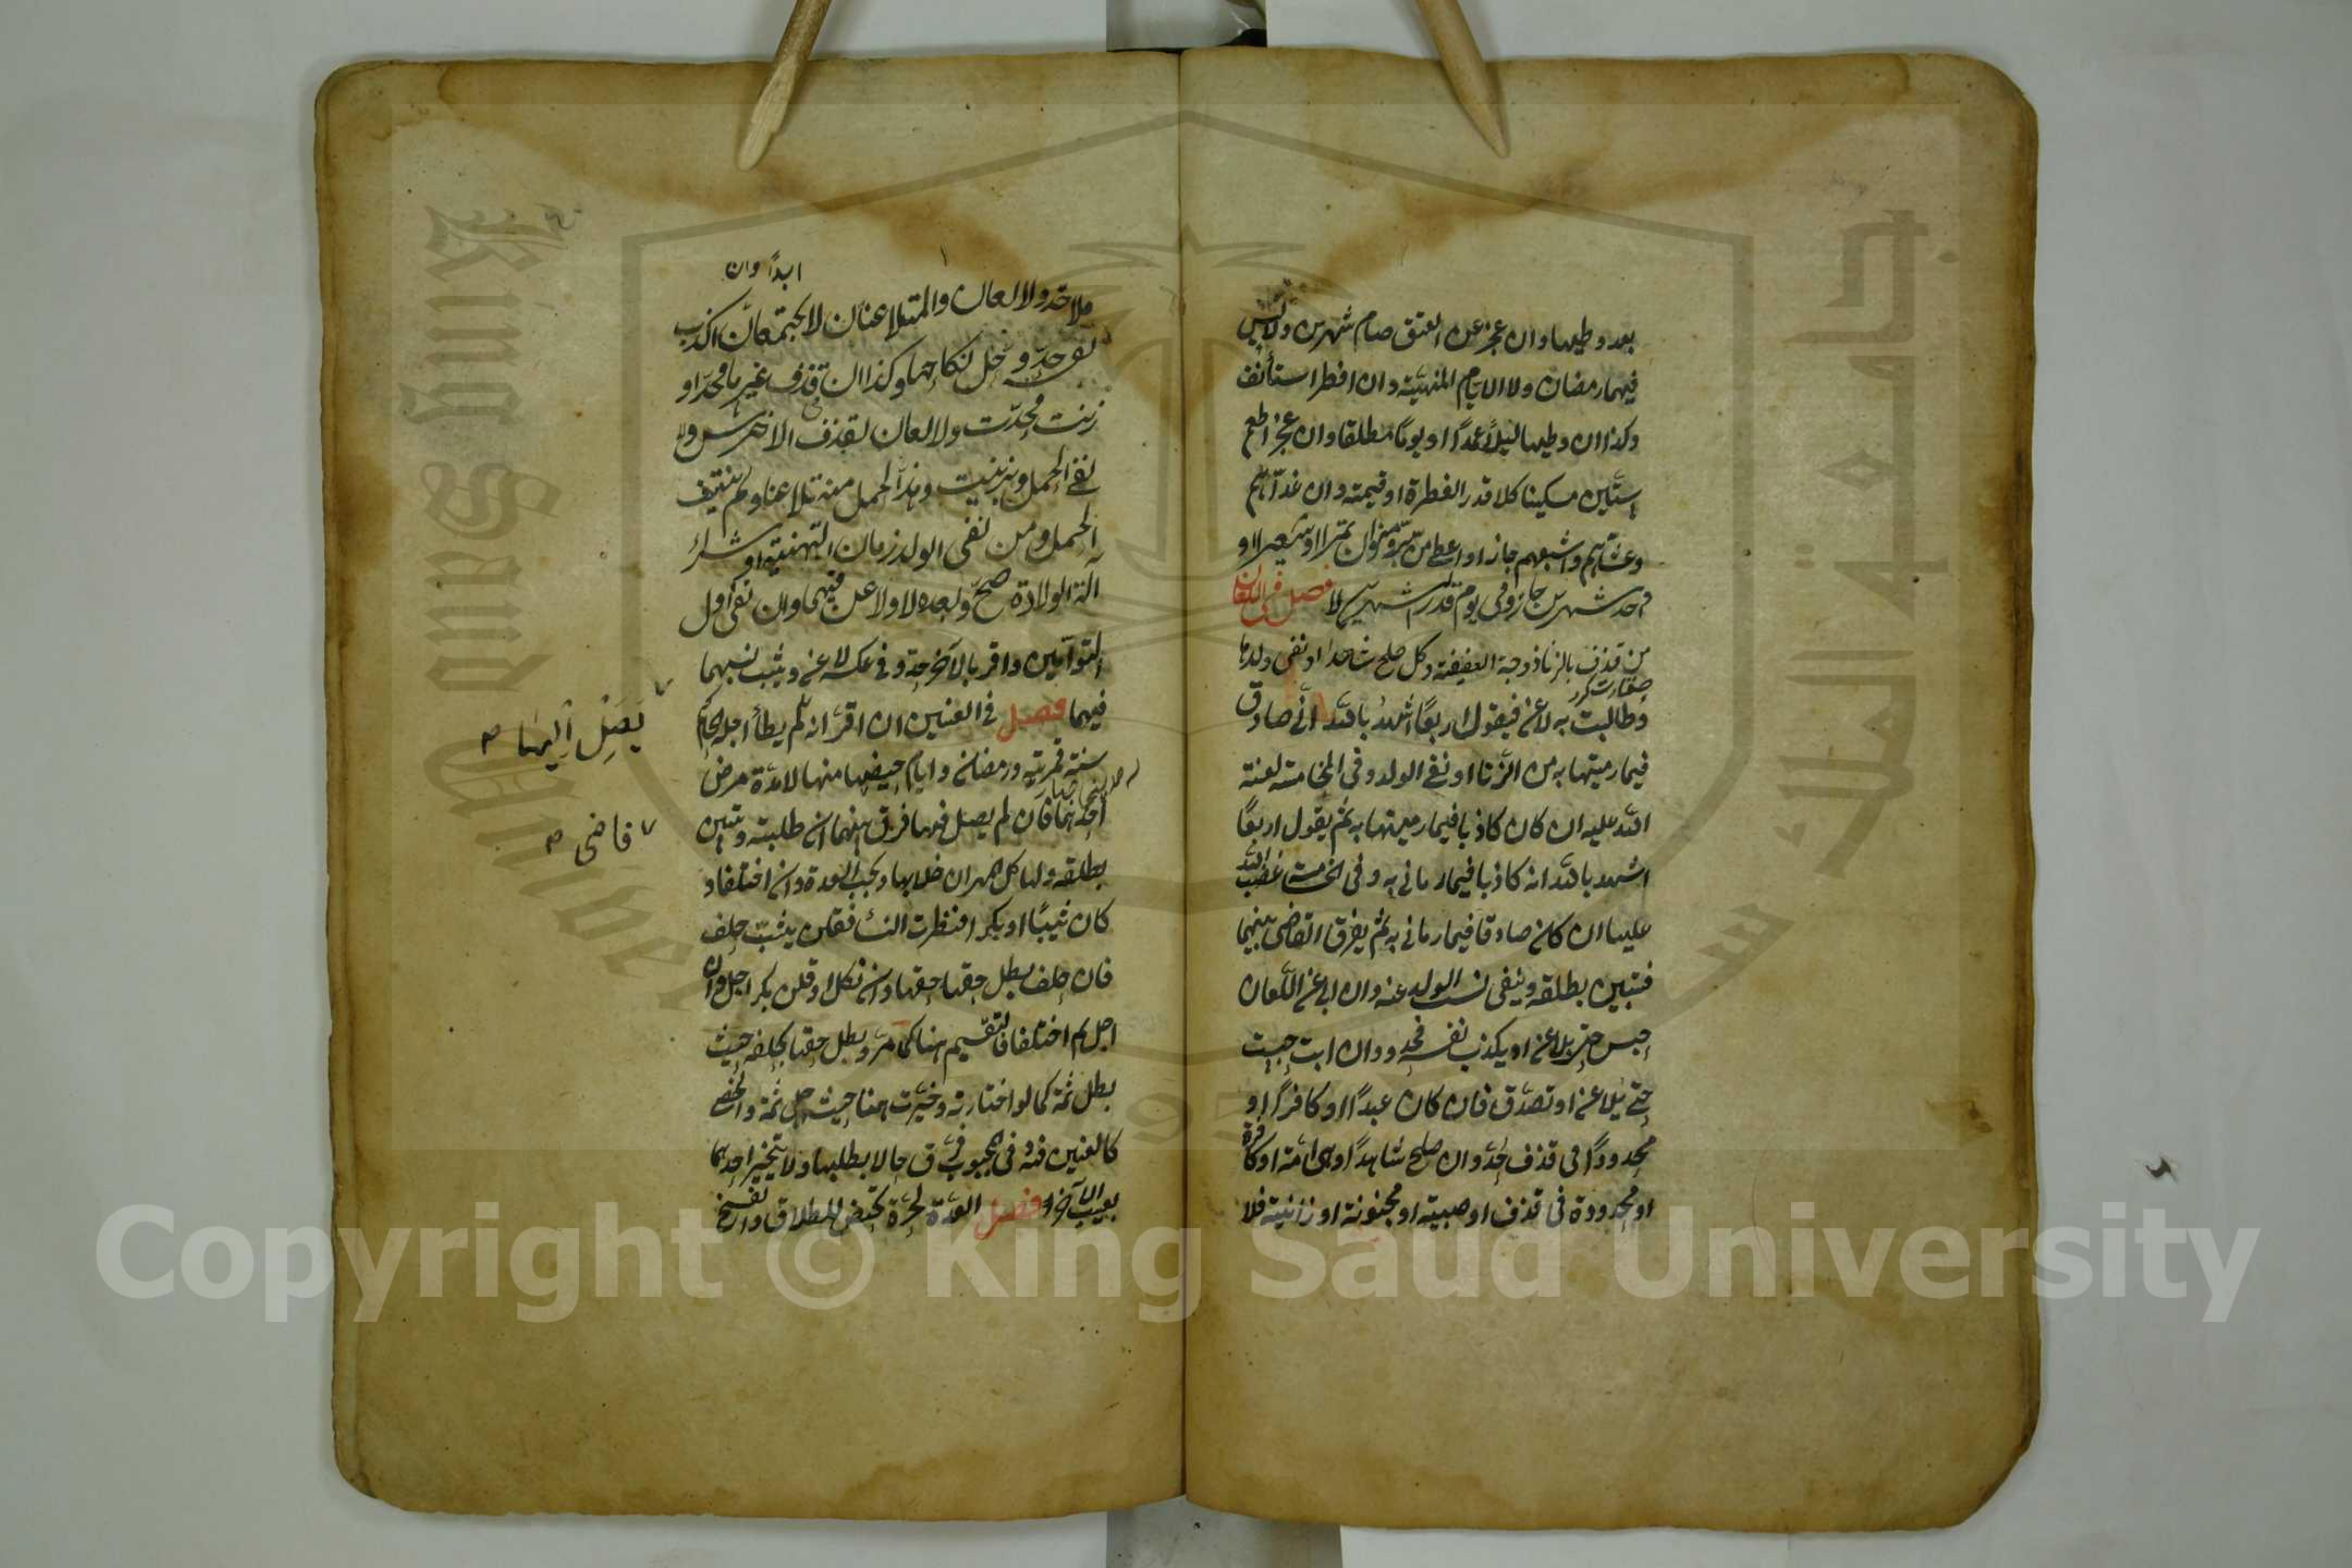 بعد وطيها وان عجز عن العتق صام شهرين ولاء ليس
فيهما رمضان ولا الايام المنهيّة وان افطر استأنف
وكذا ان وطيها ليلاً عمداً او يوماً مطلقا وان عجز اطعم
ستّين مسكينا كلا قدر الفطرة او قيمته وان غدّاهم
وعشّاهم واشبعهم جاز او اعطى من برّ ومنوان تمرا او شعيرا او
واحد شهرين جاز وفى يوم قدر الشهرين لا فصل فى اللعان
من قذف بالزنا زوجة العفيفة وكل صلح شاهدا او نفى ولدها
وطالبت به لاعن فيقول اربعًا اشهد بالله انّى صادق
فيما رميتها به من الزّنا او نفى الولد وفى الخامسة لعنة
الله عليه ان كان كاذبا فيما رميتها به ثم يقول اربعًا
اشهد بالله انه كاذبا فيما رمانى به وفى الخامسة غضب الله
عليها ان كان صادقا فيما رمانى به ثم يفرق القاضى بينهما
فتبين بطلقة وينفى نسب الولد عنه وان ابى عن اللّعان
حبس حتى يلاعن او يكذب نفسه فحد وان ابت حبست
حتى يلاعن او تصدّق فان كان عبداً او كافراً او
محدوداً فى قذف حُدّ وان صلح شاهداً وهى امة او كافرة
او محدودة فى قذف او صبيّة او مجنونة او زانية فلا
ابداً وان
فلا حد ولا لعان والمتلاعنان لا يجتمعان اكذب
نفسه حدّ وحلّ نكاحها وكذا ان قذف غيرها فحدّ او
زنت فحدّت ولا لعان لقذف الاخرس ولا
نفى الحمل وبزنيت وهذا الحمل منه تلاعنا ولم ينتف
الحمل ومن نفى الولد زمان التهنية او شراء
آلة الولادة صحّ وبعده لا ولاعن فيهما وان نفى اول
التوأمين واقر بالآخر حدّ وفى عكسه لاعن ويثبت نسبهما
فيهما فصل فى العنين ان اقرّ انه لم يطأ اجله الحاكم
سنة قمريّة ورمضان وايام حيضها منها لا مدّة مرض
احدهما فان لم يصل فيها فرق بينهما ان طلبته وتبين
بطلقة ولها كل المهر ان خلا بها ويجب العدة وان اختلفا و
كان ثيّبًا او بكرا فنظرت النساء فقلن ثيّب حلف
فان حلف بطل حقها وان نكل او قلن بكر اجل وان
اجل ثم اختلفا فالتقسيم هنا كما مرّ وبطل حقها بحلفه حيث
بطل ثمة كما لو اختارته وخيّرت هنا حيث اجل ثمة والخصى
كالعنين فيه وفى المجبوب فرّق حالا بطلبها ولا يتخيّر احدهما
بعيب الآخر فصل العدّة لحرّة تحيض للطلاق والفسخ
يَصِلْ اِلَيْهَا
قاضى
Copyright © King Saud University